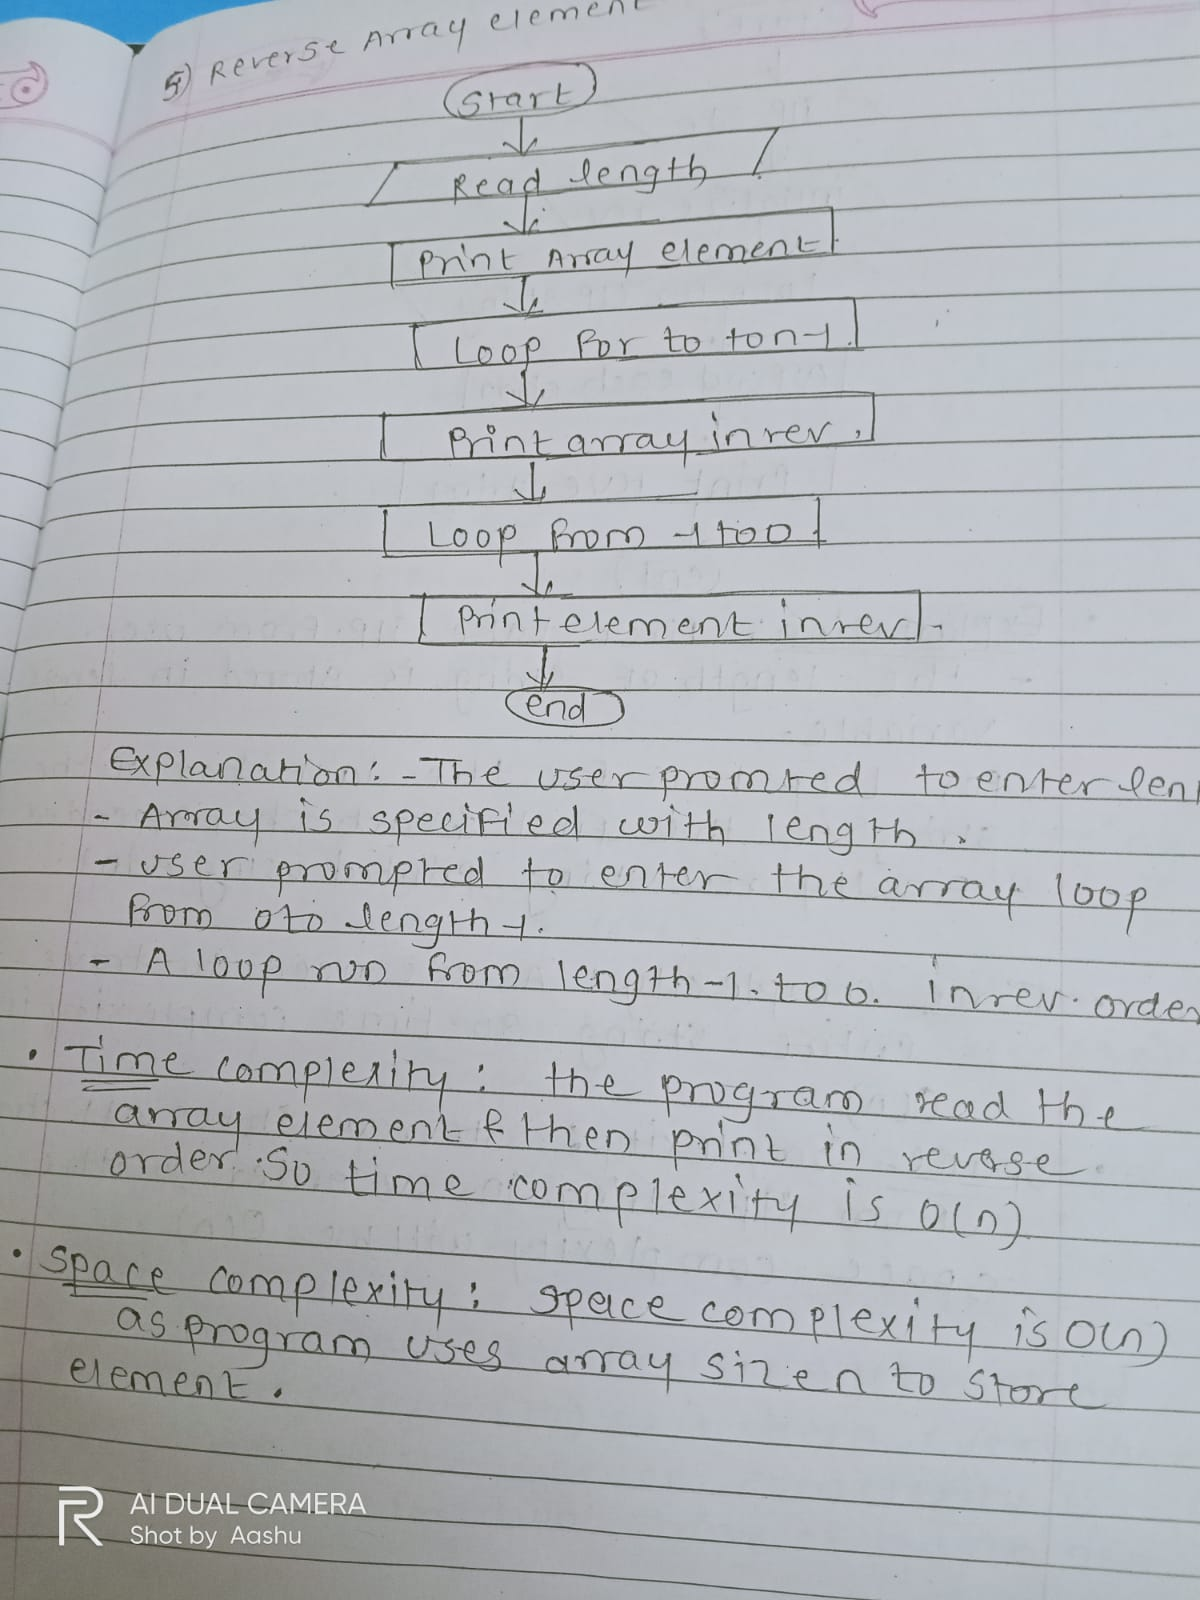 5) Reverse Array element
Start
Read length
Print Array element
Loop for to to n-1.
Print array in rev.
Loop from -1 to 0
Print element in rev.
end
Explanation: - The user promted to enter len
- Array is specified with length.
- user prompted to enter the array loop
from 0 to length-1.
- A loop run from length-1. to 0. in rev. order
• Time complexity: the program read the
array element & then print in reverse
order. So time complexity is O(n)
• Space complexity: space complexity is O(n)
as program uses array size n to store
element.
R AI DUAL CAMERA
Shot by Aashu